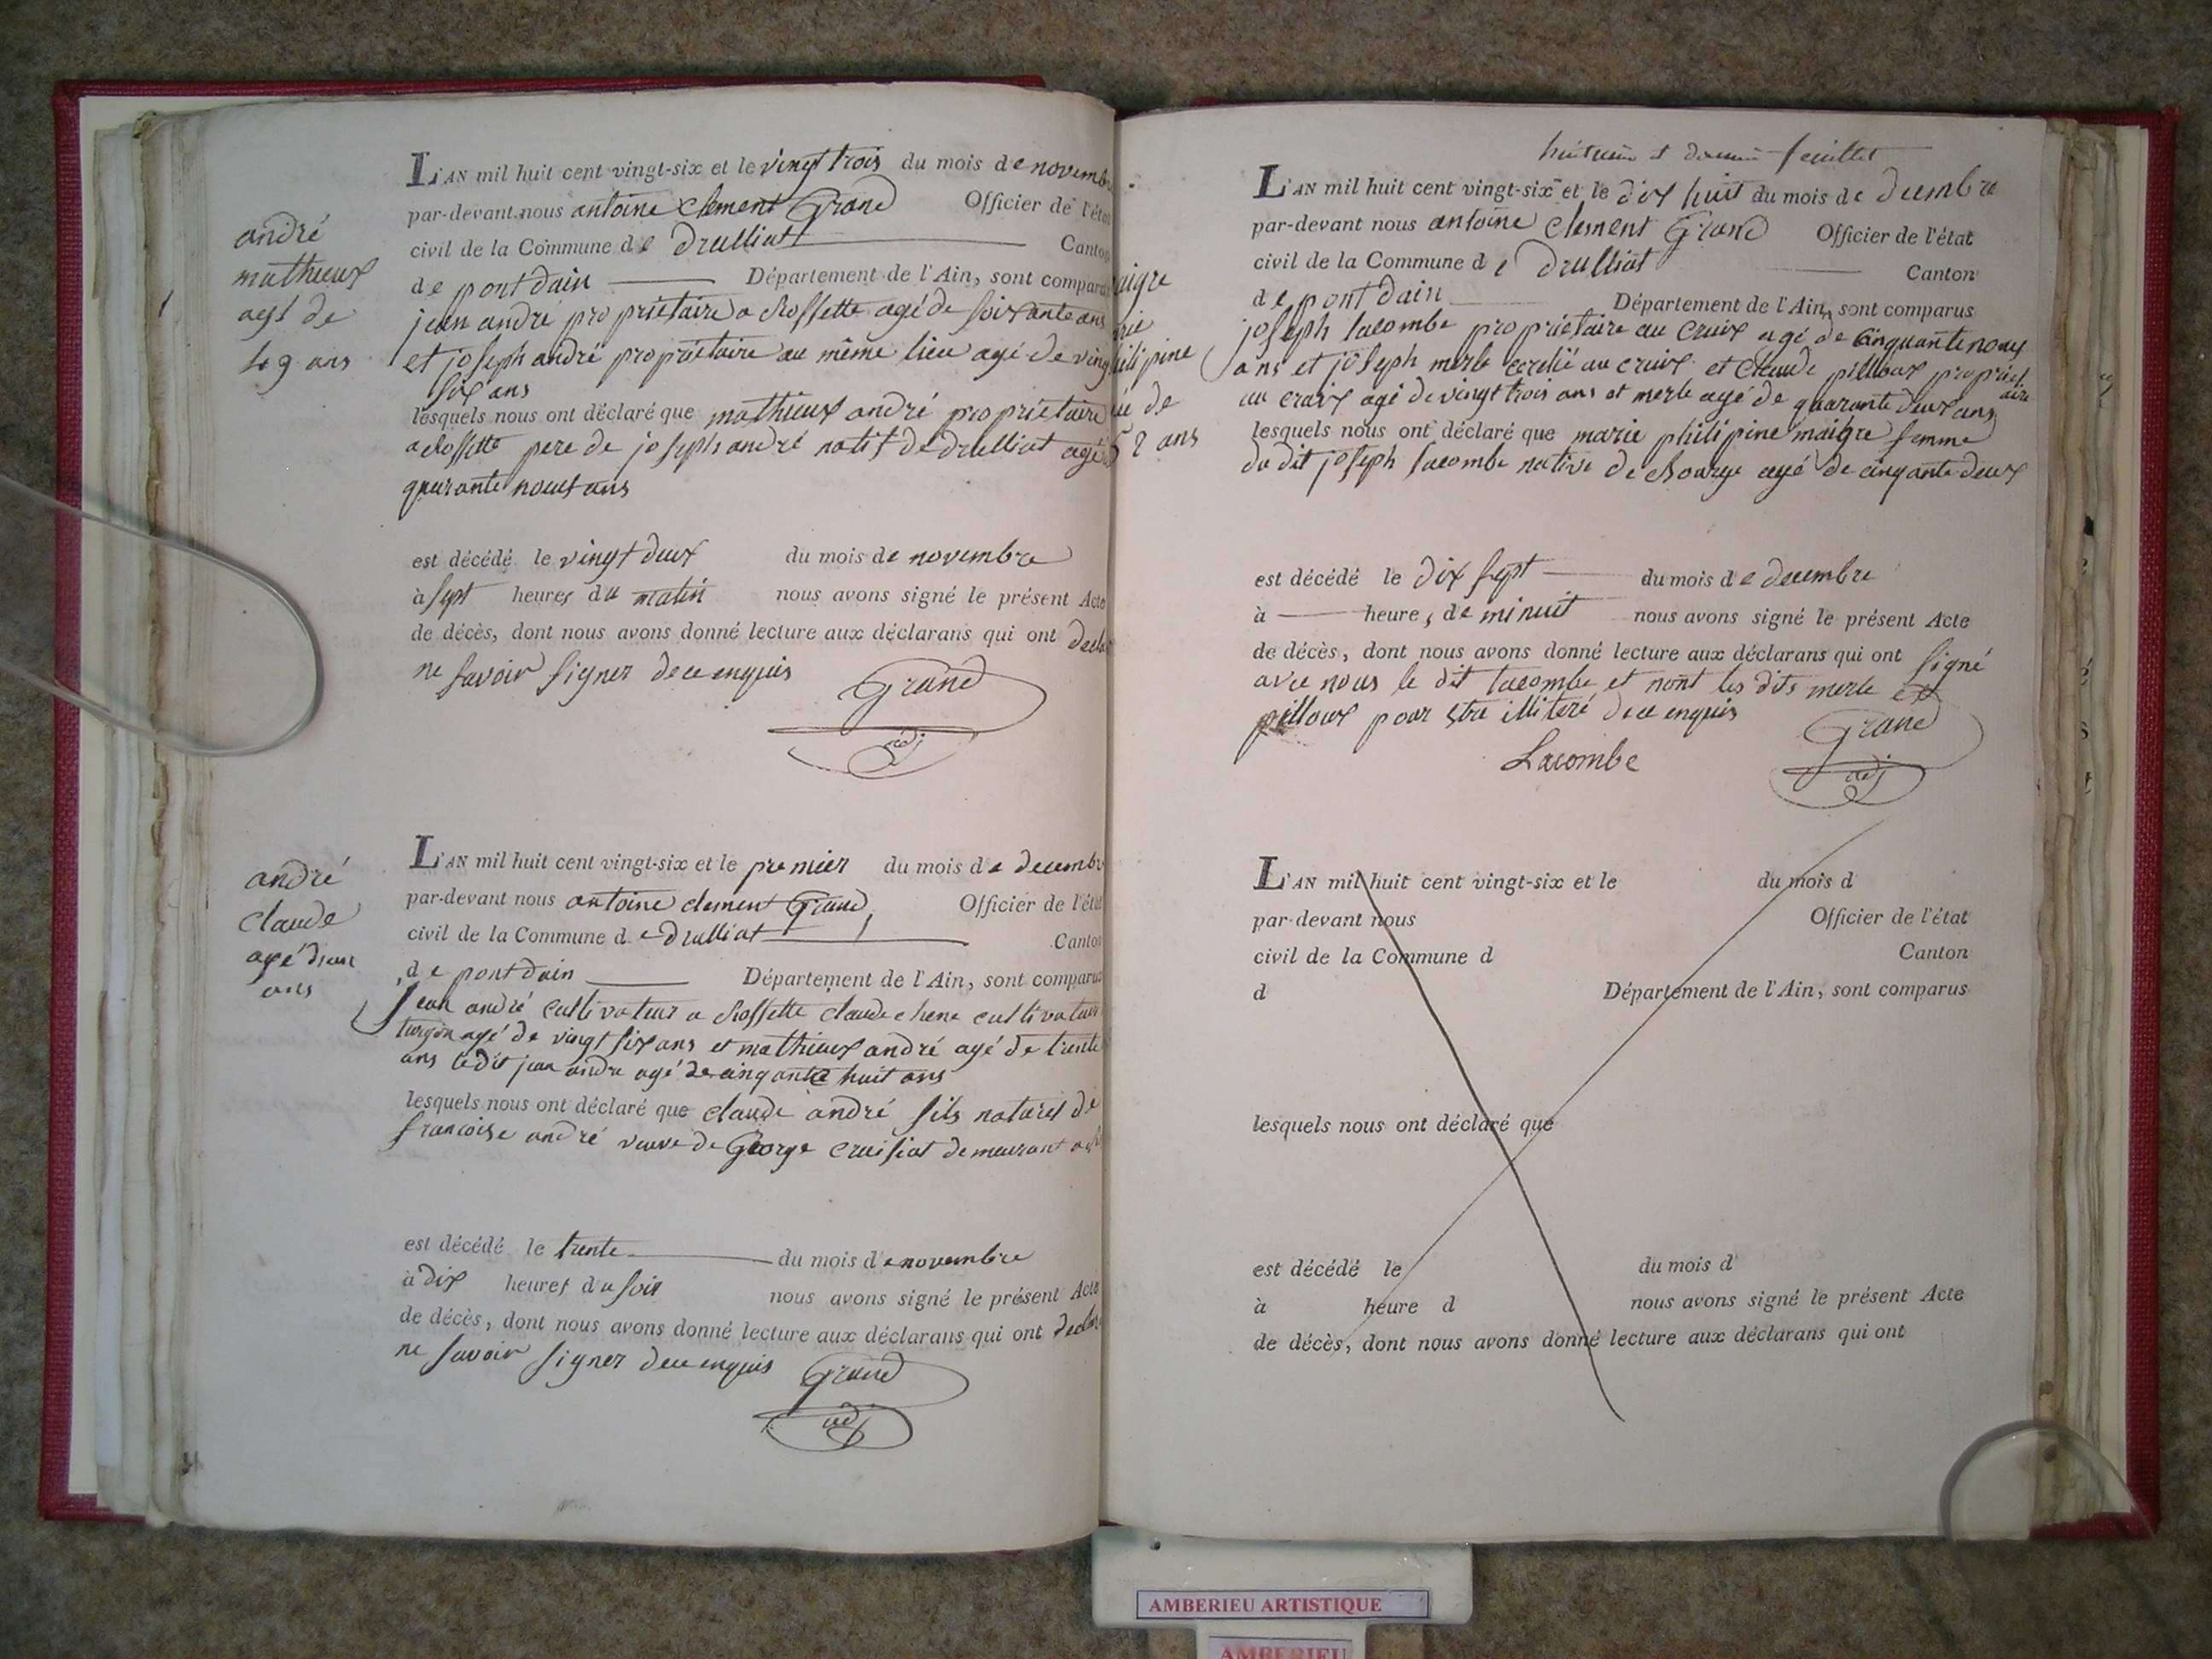 andré
mathieux
agé de
49 ans
L'AN mil huit cent vingt-six et le vingt trois du mois de novemb
par-devant nous antoine clement Grand Officier de l'état
civil de la Commune de Druilliat Canton
de pont dain Département de l'Ain, sont compar
jean andré proprietaire a Rossette agé de soixante ans
et joseph andré proprietaire au même lieu agé de ving
six ans
lesquels nous ont déclaré que mathieux andré proprietaire
a Rossette pere de joseph andré natif de druilliat agé
quarante neuf ans
est décédé le vingt deux du mois de novembre
à sept heures du matin nous avons signé le présent Acte
de décès, dont nous avons donné lecture aux déclarans qui ont decla
ne savoir signer de ce enquis
Grand
adj
andré
claude
agé
ans
L'AN mil huit cent vingt-six et le premier du mois de decemb
par-devant nous antoine clement Grand, Officier de l'état
civil de la Commune de Druilliat Canton
de pont dain Département de l'Ain, sont comparus
Jean andré cultivateur a Rossette claude chene cultivateur
turgon agé de vingt six ans et mathieux andré agé de trente
ans ledit jean andré agé de cinqante huit ans
lesquels nous ont déclaré que claude andré fils naturel de
francoise andré veuve de George cruisiat demeurant a
est décédé le trente du mois de novembre
à dix heures du soir nous avons signé le présent Acte
de décès, dont nous avons donné lecture aux déclarans qui ont declar
ne savoir signer de ce enquis
Grand
adj
aigre
rie
ilipine
ée de
52 ans
feuillet
L'AN mil huit cent vingt-six et le dix huit du mois de decembre
par-devant nous antoine clement Grand Officier de l'état
civil de la Commune de Druilliat Canton
de pont Dain Département de l'Ain, sont comparus
joseph lacombe proprietaire au cruix agé de cinquante neuf
ans et joseph merle au cruix et Claude pilloux propriet
aire
au cruix agé de vingt trois ans et merle agé de quarante deux ans
lesquels nous ont déclaré que marie philipine maigre femme
du dit joseph lacombe native de agé de cinqante deux
est décédé le dix sept du mois de decembre
à heure, de minuit nous avons signé le présent Acte
de décès, dont nous avons donné lecture aux déclarans qui ont signé
avec nous le dit lacombe et nont les dits merle et
pilloux pour etre illiteré de ce enquis
Grand
adj
Lacombe
L'AN mil huit cent vingt-six et le du mois d
par-devant nous Officier de l'état
civil de la Commune d Canton
d Département de l'Ain, sont comparus
lesquels nous ont déclaré que
est décédé le du mois d
à heure d nous avons signé le présent Acte
de décès, dont nous avons donné lecture aux déclarans qui ont
AMBERIEU ARTISTIQUE
AMBERIEU